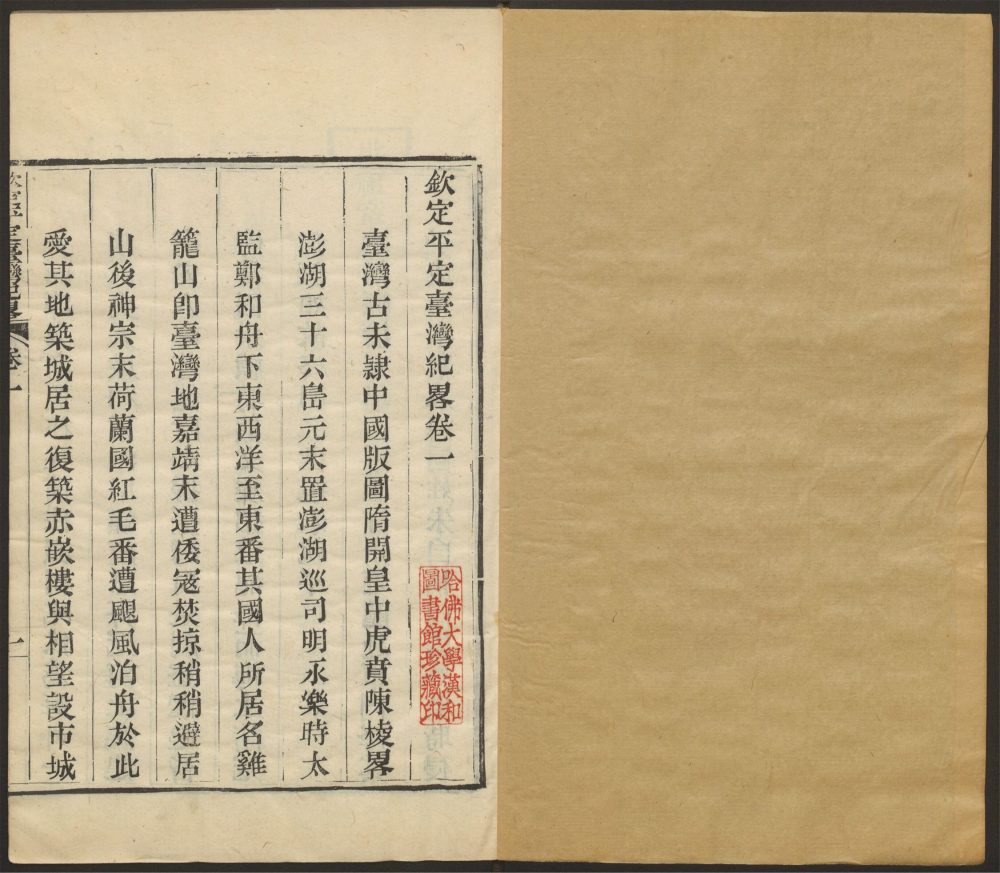 欽定平定臺灣紀畧卷一
哈佛大學漢和
圖書館珍藏印
臺灣古未隸中國版圖隋開皇中虎賁陳稜畧
澎湖三十六島元末置澎湖巡司明永樂時太
監鄭和舟下東西洋至東番其國人所居名雞
籠山卽臺灣地嘉靖末遭倭冦焚掠稍稍避居
山後神宗末荷蘭國紅毛番遭颶風泊舟於此
愛其地築城居之復築赤嵌樓與相望設市城
欽定平定臺灣紀畧 卷一 一